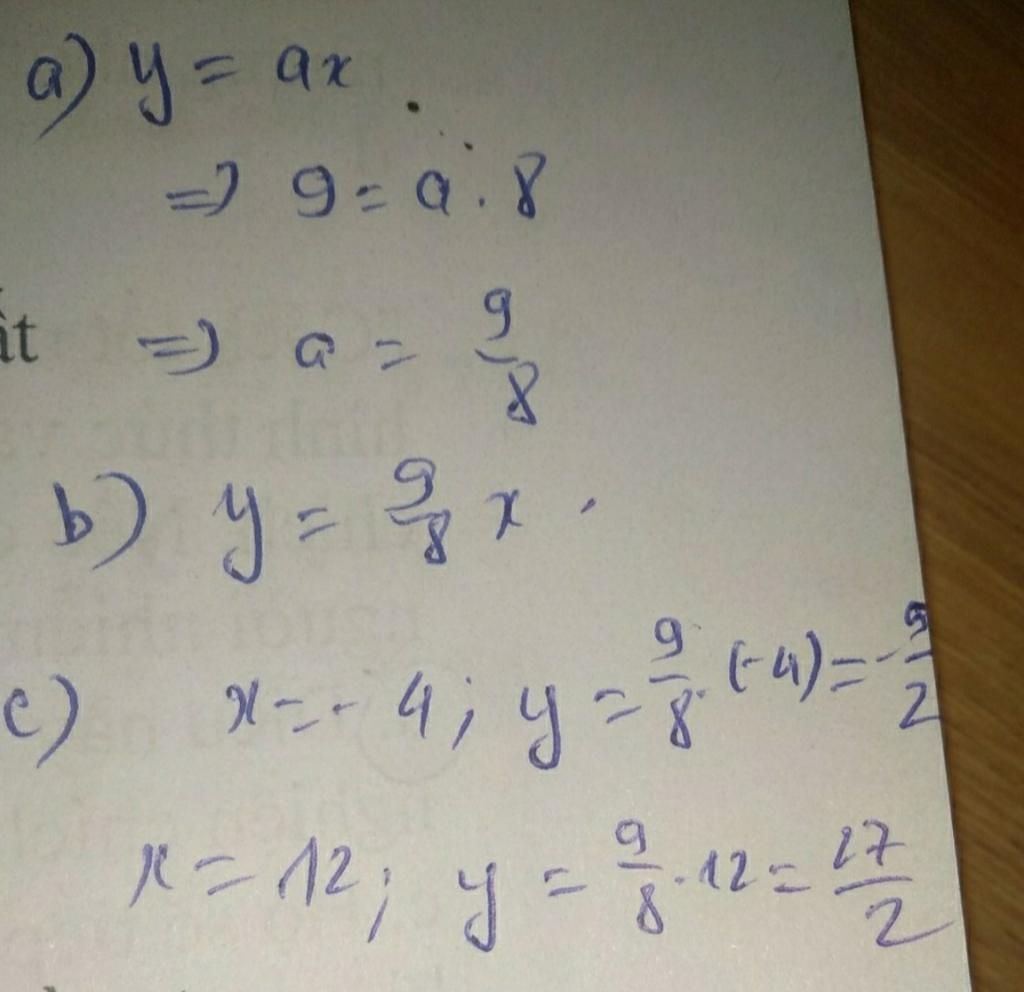 a) y = ax
=> 9 = a . 8
ất => a = 9/8
b) y = 9/8 x .
c) x = - 4 ; y = 9/8 . (-4) = -9/2
x = 12 ; y = 9/8 . 12 = 27/2